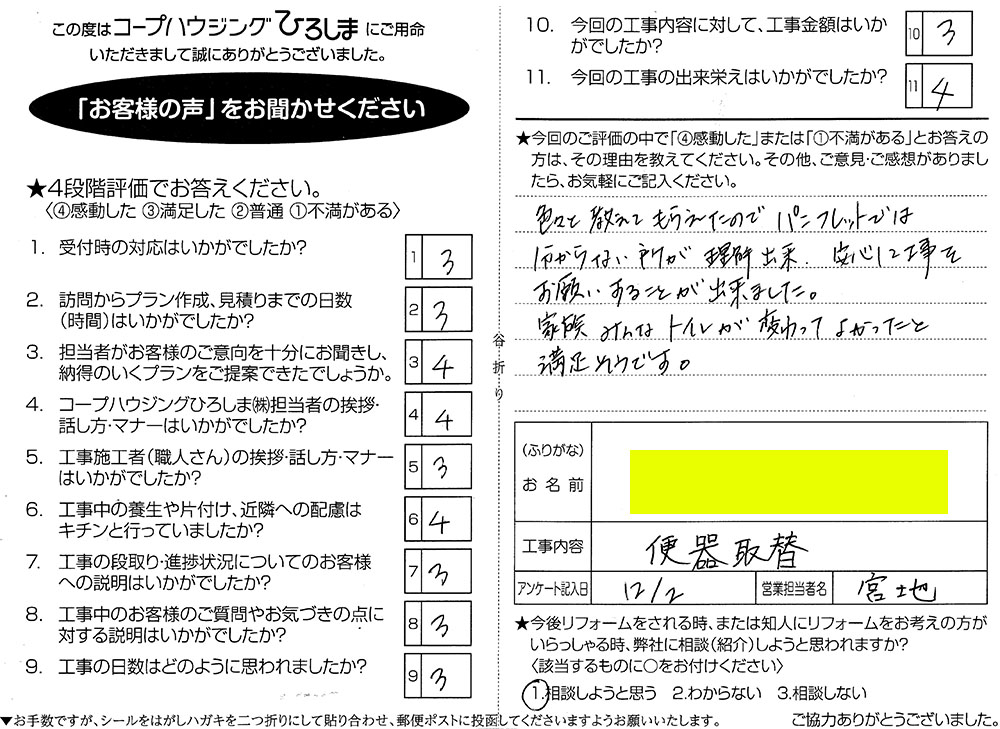 この度はコープハウジングひろしまにご用命
いただきまして誠にありがとうございました。
「お客様の声」をお聞かせください
★4段階評価でお答えください。
〈④感動した ③満足した ②普通 ①不満がある〉
1. 受付時の対応はいかがでしたか?
1 3
2. 訪問からプラン作成、見積りまでの日数
（時間）はいかがでしたか?
2 3
3. 担当者がお客様のご意向を十分にお聞きし、
納得のいくプランをご提案できたでしょうか。
3 4
4. コープハウジングひろしま㈱担当者の挨拶・
話し方・マナーはいかがでしたか?
4 4
5. 工事施工者（職人さん）の挨拶・話し方・マナー
はいかがでしたか?
5 3
6. 工事中の養生や片付け、近隣への配慮は
キチンと行っていましたか?
6 4
7. 工事の段取り・進捗状況についてのお客様
への説明はいかがでしたか?
7 3
8. 工事中のお客様のご質問やお気づきの点に
対する説明はいかがでしたか?
8 3
9. 工事の日数はどのように思われましたか?
9 3
谷折り
10. 今回の工事内容に対して、工事金額はいか
がでしたか?
10 3
11. 今回の工事の出来栄えはいかがでしたか?
11 4
★今回のご評価の中で「④感動した」または「①不満がある」とお答えの
方は、その理由を教えてください。その他、ご意見・ご感想がありまし
たら、お気軽にご記入ください。
色々と教えてもらえたのでパンフレットでは
分からない所が理解出来、安心して工事を
お願いすることが出来ました。
家族みんなトイレが変わってよかったと
満足そうです。
（ふりがな）
お名前
工事内容 便器取替
アンケート記入日 12/2 営業担当者名 宮地
★今後リフォームをされる時、または知人にリフォームをお考えの方が
いらっしゃる時、弊社に相談（紹介）しようと思われますか?
〈該当するものに○をお付けください〉
1.相談しようと思う 2.わからない 3.相談しない
▼お手数ですが、シールをはがしハガキを二つ折りにして貼り合わせ、郵便ポストに投函してくださいますようお願いいたします。
ご協力ありがとうございました。